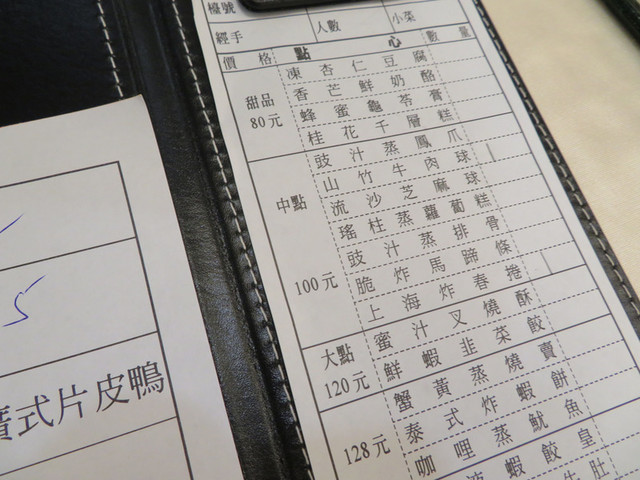 檯號
經手 人數 小菜
價格 點心 數量
甜品 80元
凍杏仁豆腐
香芒鮮奶酪
蜂蜜龜苓膏
桂花千層糕
中點 100元
豉汁蒸鳳爪
山竹牛肉球
流沙芝麻球
瑤柱蒸蘿蔔糕
豉汁蒸排骨
脆炸馬蹄條
上海炸春捲
大點 120元
蜜汁叉燒酥
鮮蝦韭菜餃
蟹黃蒸燒賣
128元
泰式炸蝦餅
咖哩蒸魷魚
蝦餃皇
牛肚
5
廣式片皮鴨